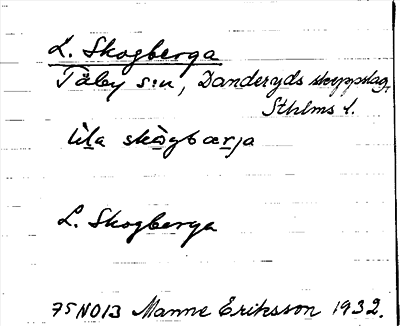 L. Skogberga
Täby s:n, Danderyds skeppslag,
Sthlms l.
lìla skògbærja
L. Skogberga
75 NO13 Manne Eriksson 1932.